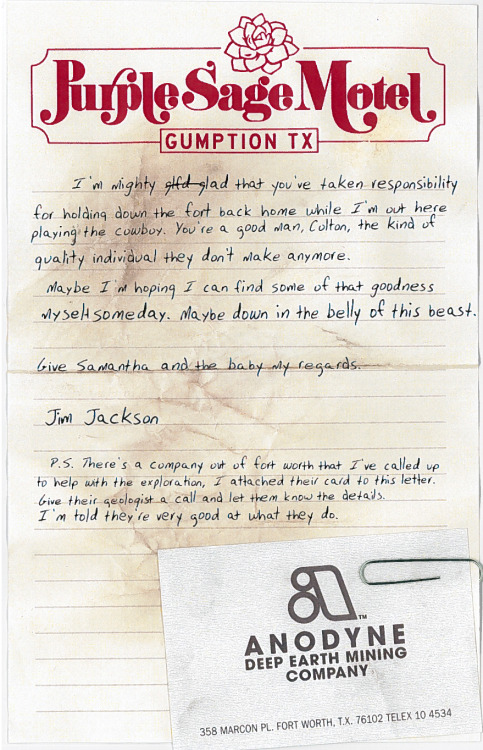 Purple Sage Motel
GUMPTION TX
I'm mighty glad that you've taken responsibility
for holding down the fort back home while I'm out here
playing the cowboy. You're a good man, Colton, the kind of
quality individual they don't make anymore.
Maybe I'm hoping I can find some of that goodness
myself someday. Maybe down in the belly of this beast.
Give Samantha and the baby my regards.
Jim Jackson
P.S. There's a company out of fort worth that I've called up
to help with the exploration, I attached their card to this letter.
Give their geologist a call and let them know the details.
I'm told they're very good at what they do.
™
ANODYNE
DEEP EARTH MINING
COMPANY
358 MARCON PL. FORT WORTH, T.X. 76102 TELEX 10 4534